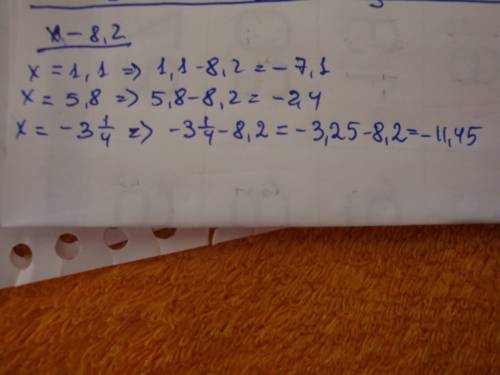 x - 8,2
x = 1,1 => 1,1 - 8,2 = - 7,1
x = 5,8 => 5,8 - 8,2 = -2,4
x = -3 1/4 => -3 1/4 - 8,2 = -3,25 - 8,2 = -11,45